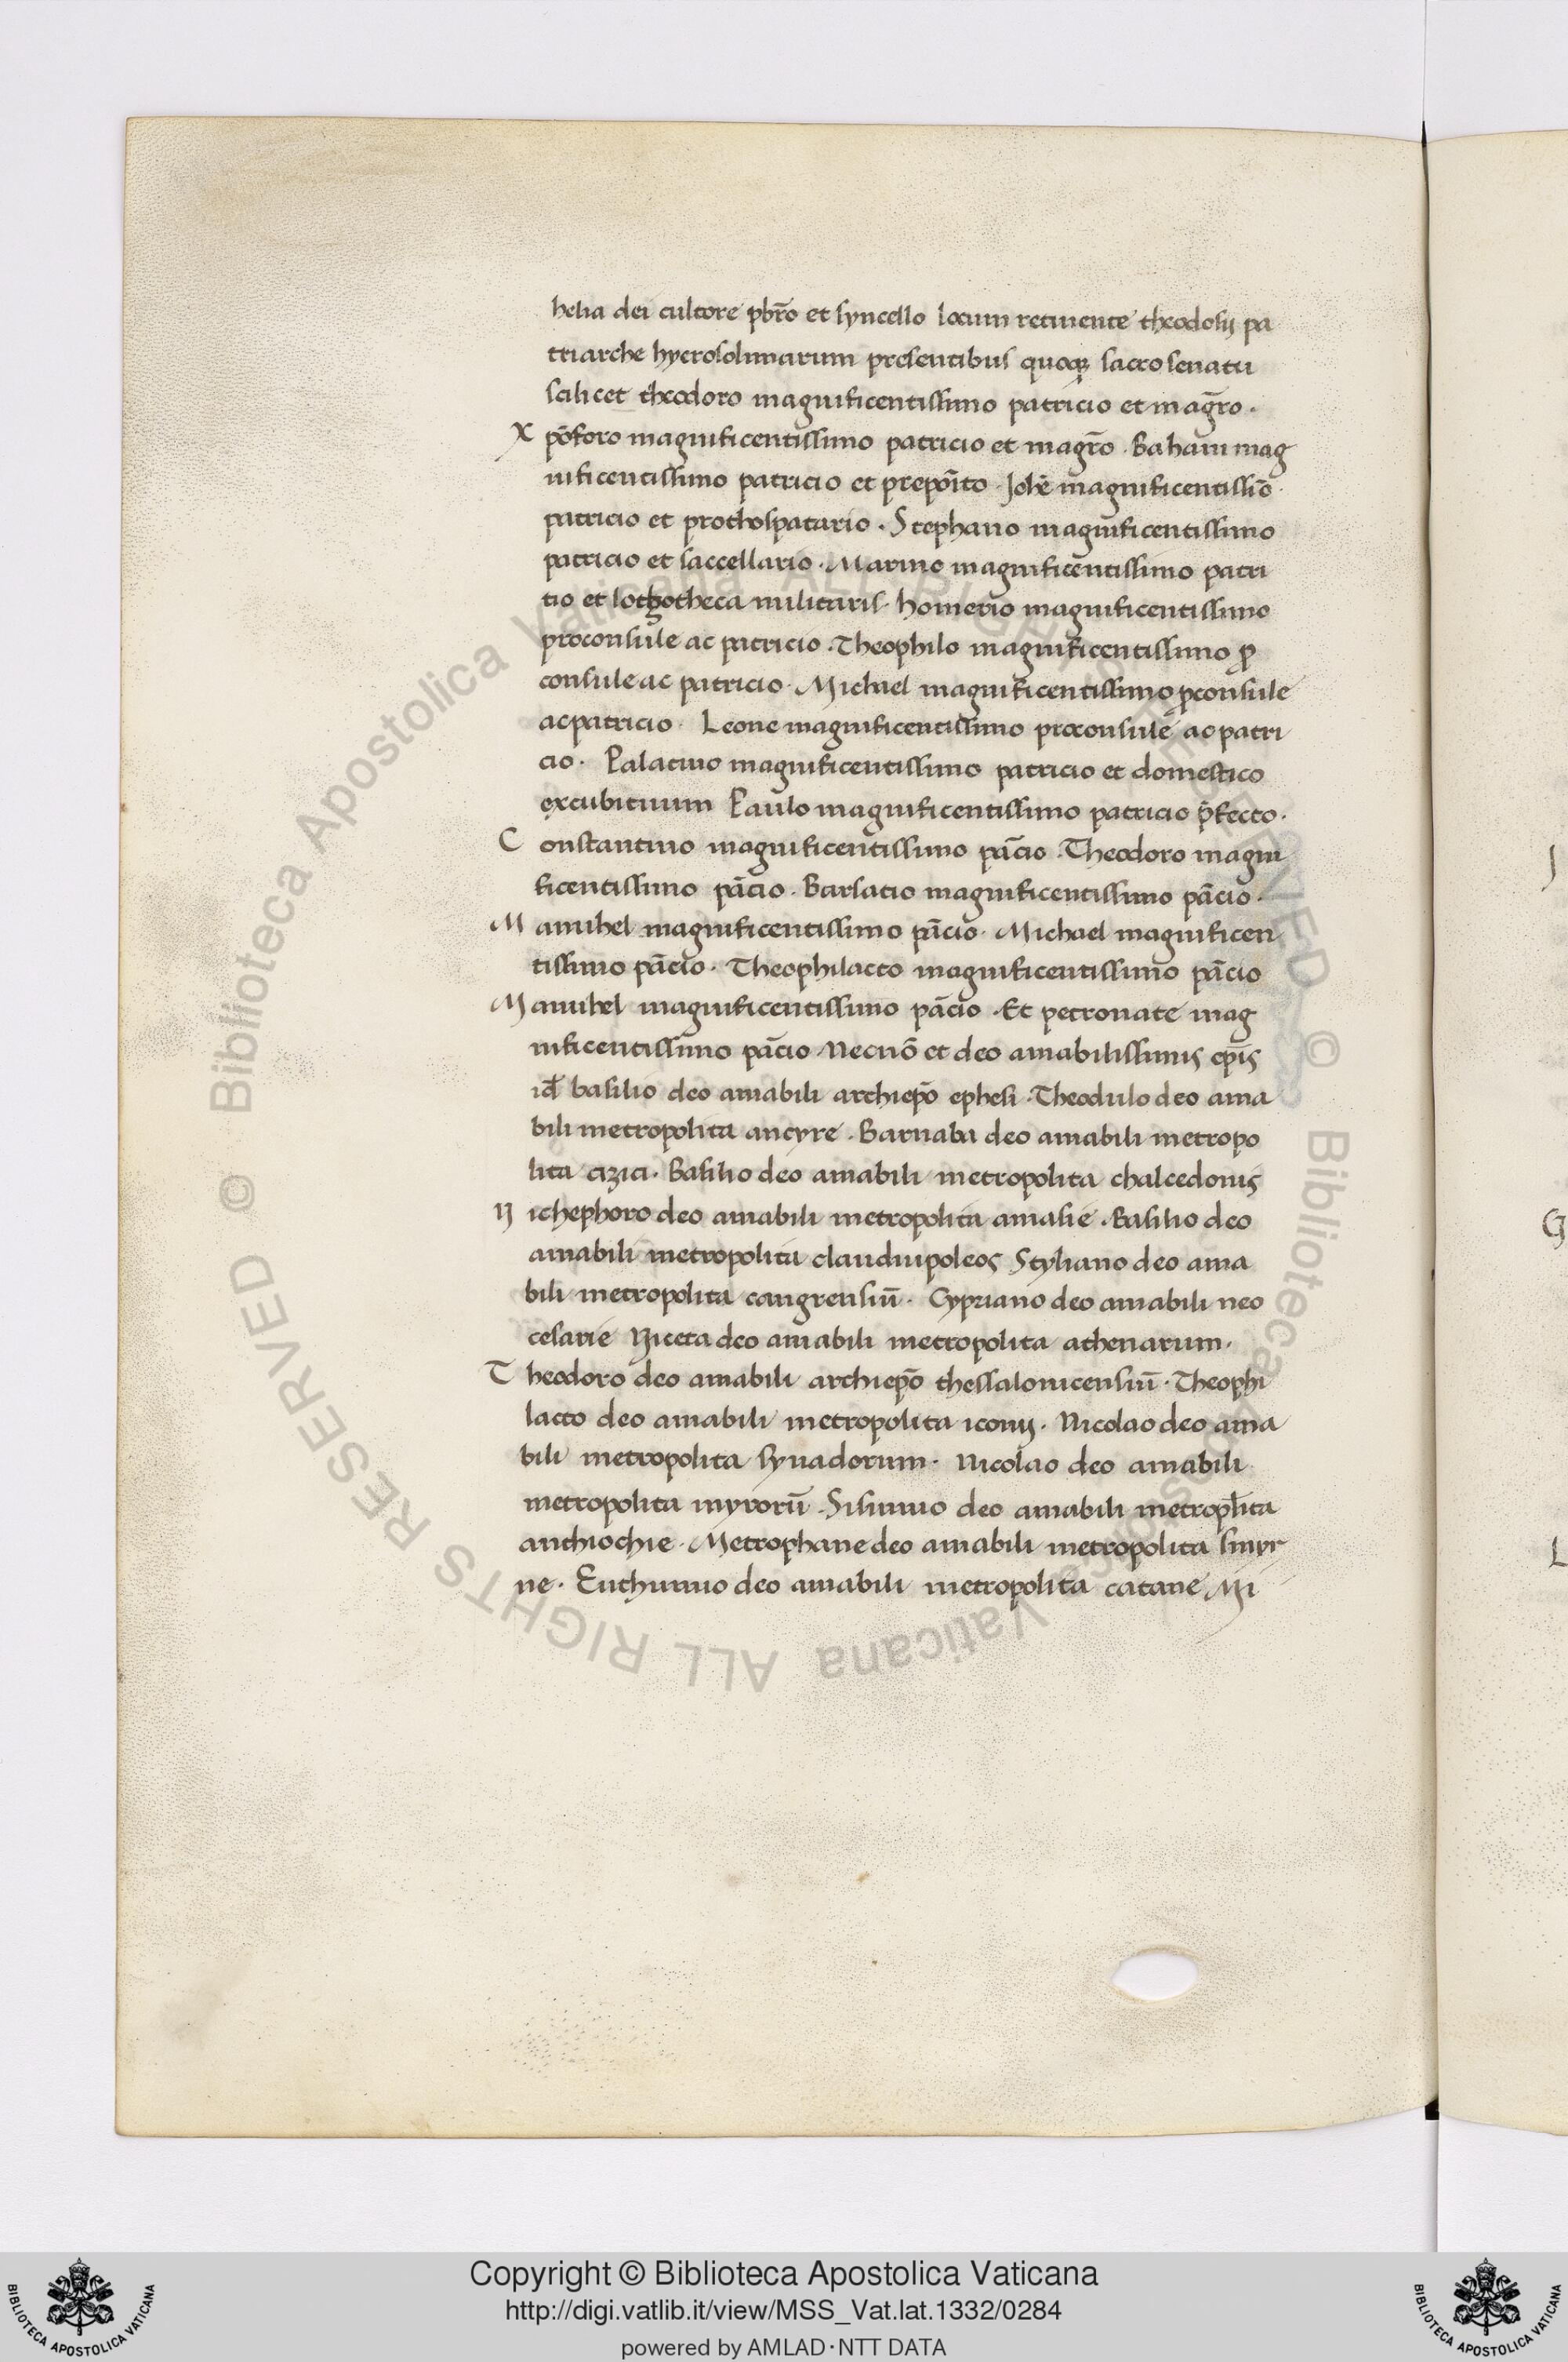 helia dei cultore pbr̄o et syncello locum retinente theodosij pa
triarche hyerosolimarum presentibus quoqꝫ sacro senatu
scilicet theodoro magnificentissimo patricio et magr̄o.
X pōforo magnificentissimo patricio et magr̄o. Bahani mag
nificentissimo patricio et prepōito. Johē magnificentissiō.
patricio et prothospatario. Stephano magnificentissimo
patricio et saccellario. Marino magnificentissimo patri
tio et lothgotheca militaris. homerio magnificentissimo
proconsule ac patricio. Theophilo magnificentissimo ꝓ
consule ac patricio. Michael magnificentissimo ꝓconsule
ac patricio. Leone magnificentissimo proconsule ac patri
cio. Palatino magnificentissimo patricio et domestico
excubituum Paulo magnificentissimo patricio p̄fecto.
C onstantino magnificentissimo pācio. Theodoro magni
ficentissimo pācio. Barsacio magnificentissimo pācio.
M anuhel magnificentissimo pācio. Michael magnificen
tissimo pācio. Theophilacto magnificentissimo pācio
M anuhel magnificentissimo pācio. Et petronate mag
nificentissimo pācio. Necnō et deo amabilissimis ep̄is
id̄ basilio deo amabili archiep̄o ephesi. Theodulo deo ama
bili metropolita ancyre. Barnaba deo amabili metropo
lita cizici. Basilio deo amabili metropolita chalcedonis
N ichephoro deo amabili metropolita amasie. Basilio deo
amabili metropolita claudiupoleos Styliano deo ama
bili metropolita cangrensiū. Cypriano deo amabili neo
cesarie Niceta deo amabili metropolita athenarum.
T heodoro deo amabili archiep̄o thessalonicensiū. Theophi
lacto deo amabili metropolita iconij. Nicolao deo ama
bili metropolita synadorum. Nicolao deo amabili
metropolita myrorū. Sisinnio deo amabili metropl̄ita
anthiochie. Metrophane deo amabili metropolita smyr
ne. Euthimio deo amabili metropolita catane Mi
J
G
L
© Biblioteca Apostolica Vaticana ALL RIGHTS RESERVED © Biblioteca Apostolica Vaticana ALL RIGHTS RESERVED
Copyright © Biblioteca Apostolica Vaticana
http://digi.vatlib.it/view/MSS_Vat.lat.1332/0284
powered by AMLAD・NTT DATA
BIBLIOTECA APOSTOLICA VATICANA
BIBLIOTECA APOSTOLICA VATICANA